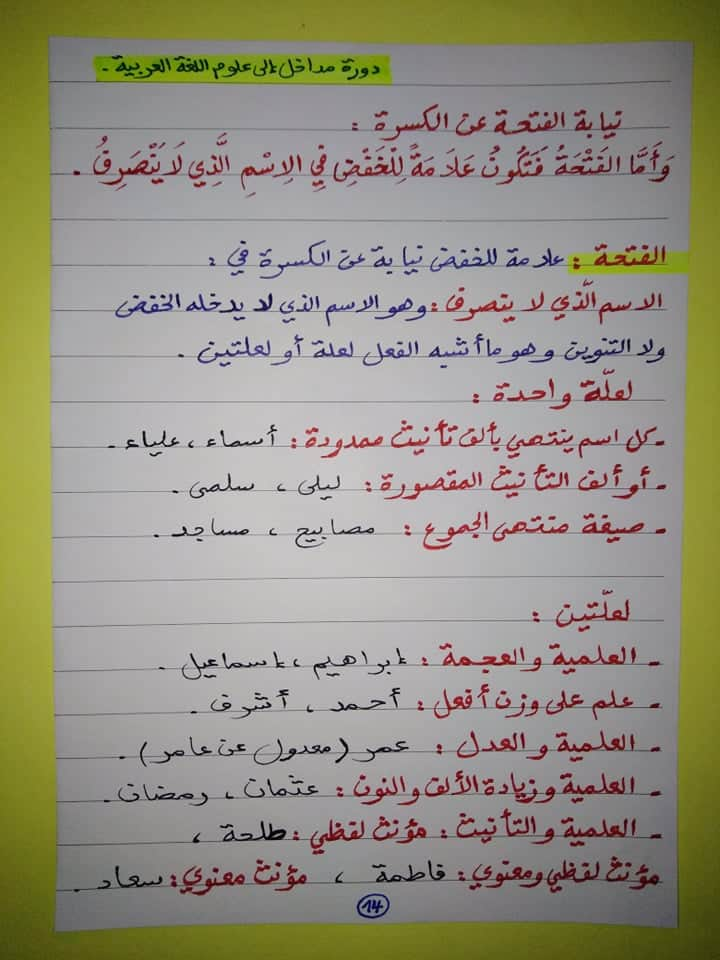 دورة مداخل إلى علوم اللغة العربية .
نيابة الفتحة عن الكسرة :
وَأَمَّا الفَتْحَةُ فَتَكُونُ عَلَامَةً لِلْخَفْضِ فِي الِاسْمِ الَّذِي لَا يَنْصَرِفُ .
الفتحة : علامة للخفض نيابة عن الكسرة في :
الاسم الّذي لا ينصرف : وهو الاسم الذي لا يدخله الخفض
ولا التنوين وهو ما أشبه الفعل لعلة أو لعلتين .
لعلّة واحدة :
- كل اسم ينتهي بألف تأنيث ممدودة : أسماء ، علياء .
- أو ألف التأنيث المقصورة : ليلى ، سلمى .
- صيغة منتهى الجموع : مصابيح ، مساجد .
لعلّتين :
- العلمية والعجمة : إبراهيم ، إسماعيل .
- علم على وزن أفعل : أحمد ، أشرف .
- العلمية والعدل : عمر (معدول عن عامر) .
- العلمية وزيادة الألف والنون : عثمان ، رمضان .
- العلمية والتأنيث : مؤنث لفظي : طلحة ،
مؤنث لفظي ومعنوي : فاطمة ، مؤنث معنوي : سعاد .
14